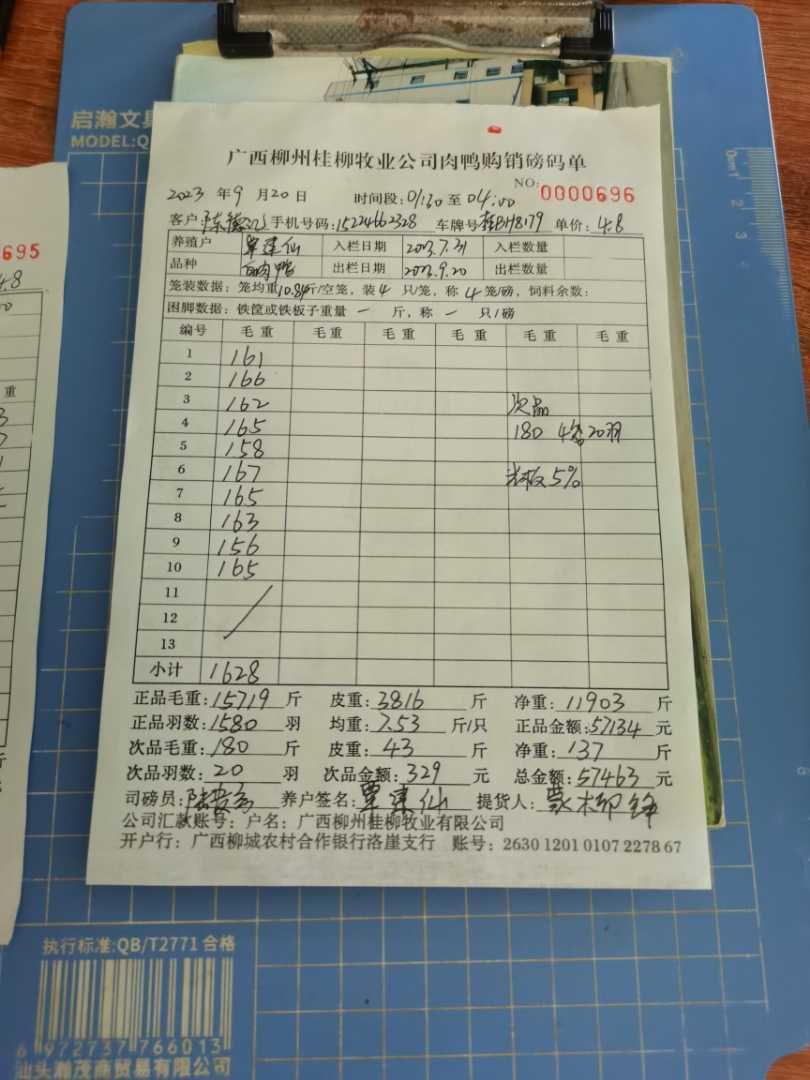 启瀚文具
MODEL:Q
广西柳州桂柳牧业公司肉鸭购销磅码单
NO: 0000696
2023 年 9 月 20 日 时间段: 01:30 至 04:00
客户: 陈德 手机号码: 15224662328 车牌号 桂BH8179 单价: 4.8
养殖户 覃建仙 入栏日期 2023.7.31 入栏数量
品种 白肉鸭 出栏日期 2023.9.20 出栏数量
笼装数据: 笼均重 10.84 斤/空笼, 装 4 只/笼, 称 4 笼/磅, 饲料余数:
困脚数据: 铁筐或铁板子重量 一 斤, 称 一 只/磅
编号 毛重 毛重 毛重 毛重 毛重 毛重
1 161
2 166
3 162 次品
4 165 180 4笼 20羽
5 158
6 167 5%
7 165
8 163
9 156
10 165
11
12
13
小计 1628
正品毛重: 15719 斤 皮重: 3816 斤 净重: 11903 斤
正品羽数: 1580 羽 均重: 7.53 斤/只 正品金额: 57134 元
次品毛重: 180 斤 皮重: 43 斤 净重: 137 斤
次品羽数: 20 羽 次品金额: 329 元 总金额: 57463 元
司磅员: 养户签名: 覃建仙 提货人:
公司汇款账号: 户名: 广西柳州桂柳牧业有限公司
开户行: 广西柳城农村合作银行洛崖支行 账号: 2630 1201 0107 2278 67
695
4.8
重
斤
执行标准:QB/T2771 合格
6 972737 766013
汕头瀚茂商贸易有限公司